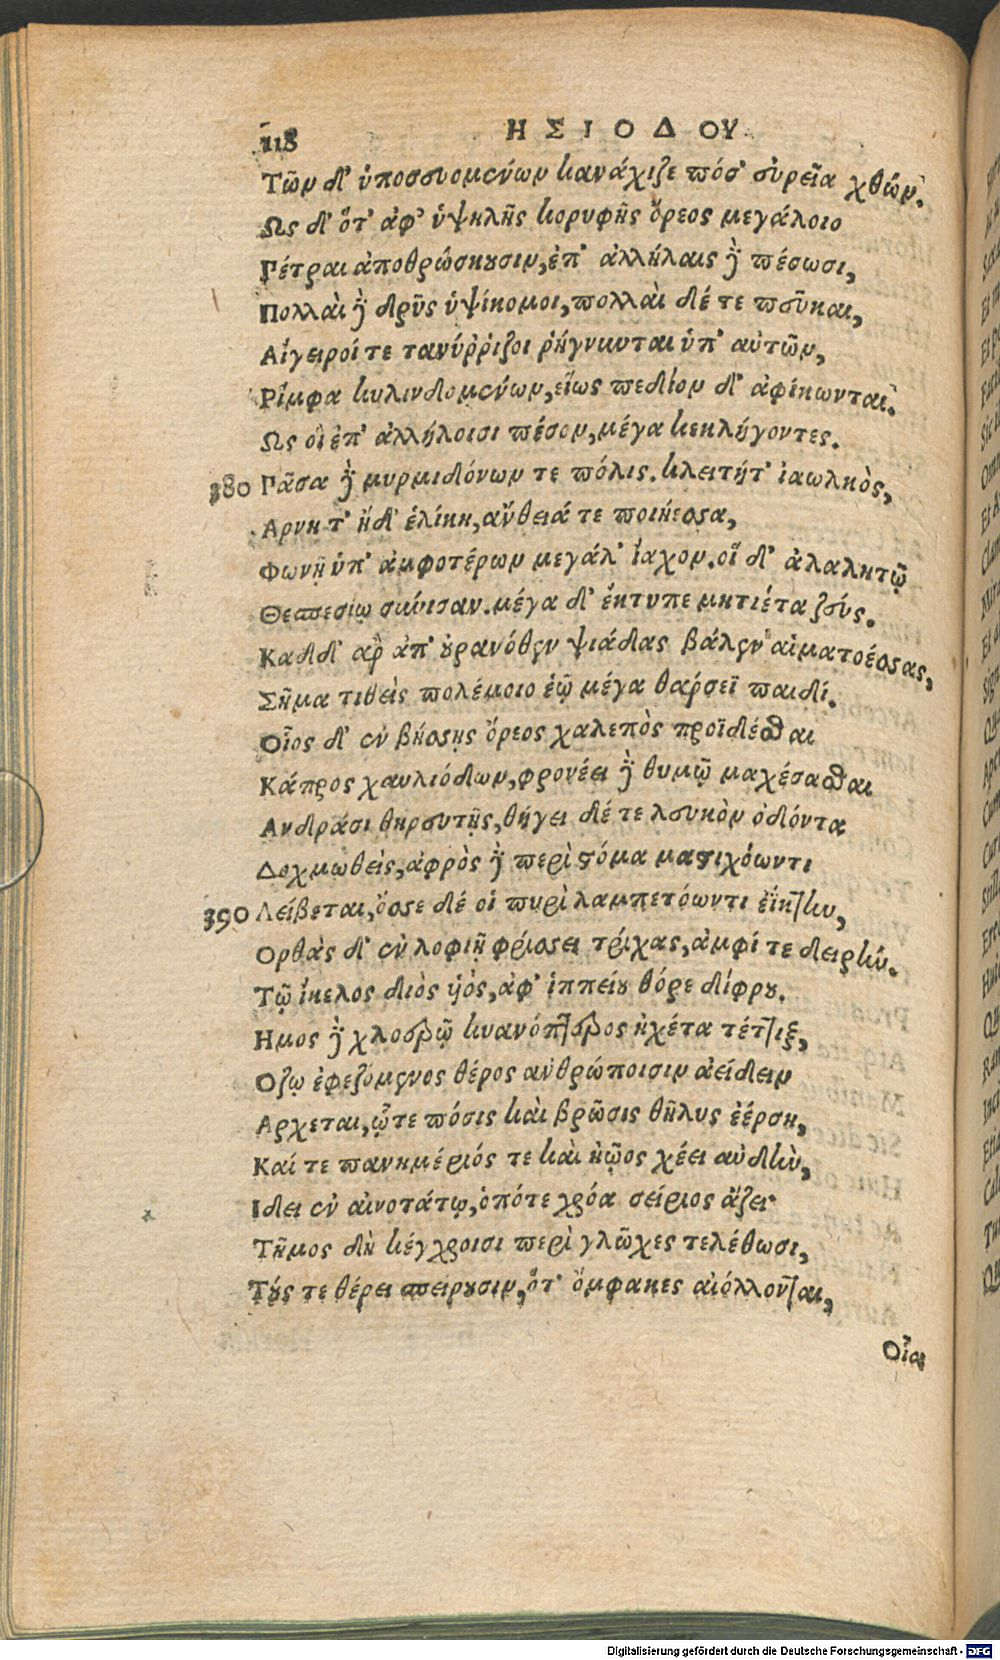 118 ΗΣΙΟΔΟΥ
Τῶν δ' ὑποσσευομένων κανάχιζε πόσ' εὐρεῖα χθών.
Ως δ' ὅτ' ἀφ' ὑψηλῆς κορυφῆς ὄρεος μεγάλοιο
Πέτραι ἀποθρώσκουσιν, ἐπ' ἀλλήλαις δὲ πέσωσι,
Πολλαὶ δὲ δρῦς ὑψίκομοι, πολλαὶ δέ τε πεῦκαι,
Αἴγειροί τε τανύῤῥιζοι ῥήγνυνται ὑπ' αὐτῶν,
Ρίμφα κυλινδομένων, εἵως πεδίον δ' ἀφίκωνται.
Ως οἳ ἐπ' ἀλλήλοισι πέσον, μέγα κεκλήγοντες.
380 Πᾶσα δὲ μυρμιδόνων τε πόλις. κλειτήτ' ἰαωλκὸς,
Αρνη τ' ἠδ' ἑλίκη, ἄνθειά τε ποιήεσσα,
Φωνῇ ὑπ' ἀμφοτέρων μεγάλ' ἴαχον. οἳ δ' ἀλαλητῷ
Θεσπεσίῳ σύνισαν. μέγα δ' ἔκτυπε μητιέτα ζεύς.
Καδδ' ἂρ ἀπ' οὐρανόθεν ψιάδας βάλεν αἱματοέσσας,
Σῆμα τιθεὶς πολέμοιο ἑῷ μέγα θαρσεῖ παιδί.
Οἷος δ' ἐν βήσσης ὄρεος χαλεπὸς προϊδέσθαι
Κάπρος χαυλιόδων, φρονέει δὲ θυμῷ μαχέσασθαι
Ανδράσι θηρευτῇς, θήγει δέ τε λευκὸν ὀδόντα
Δοχμωθεὶς, ἀφρὸς δὲ περὶ στόμα μαστιχόωντι
390 Λείβεται, ὄσσε δέ οἱ πυρὶ λαμπετόωντι ἔϊκτην,
Ορθὰς δ' ἐν λοφιῇ φρίσσει τρίχας, ἀμφί τε δειρήν.
Τῷ ἴκελος διὸς υἱὸς, ἀφ' ἱππείου θόρε δίφρου.
Ημος δὲ χλοερῷ κυανόπτερος ἠχέτα τέττιξ,
Οζῳ ἐφεζόμενος θέρος ἀνθρώποισιν ἀείδειν
Αρχεται, ᾧτε πόσις καὶ βρῶσις θῆλυς ἐέρση,
Καί τε πανημέριός τε καὶ ἠῷος χέει αὐδὴν,
Ιδει ἐν αἰνοτάτῳ, ὁπότε χρόα σείριος ἄζει·
Τῆμος δὴ κέγχροισι περὶ γλῶχες τελέθωσι,
Τούς τε θέρει σπείρουσιν, ὅτ' ὄμφακες αἰόλλονται,
Οἷα
Digitalisierung gefördert durch die Deutsche Forschungsgemeinschaft - DFG